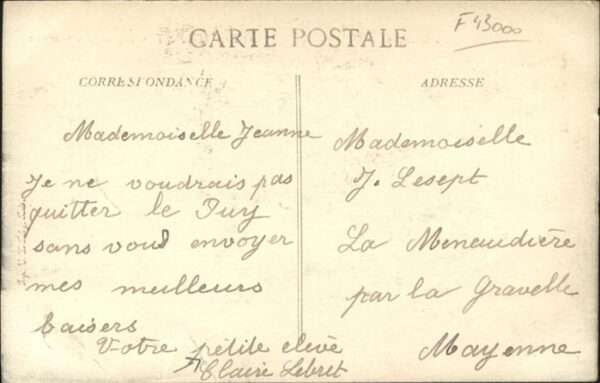 F 43000
CARTE POSTALE
CORRESPONDANCE
Mademoiselle Jeanne
Je ne voudrais pas
quitter le Puy
sans vous envoyer
mes meilleurs
baisers
Votre petite elève
Claire Lebret
ADRESSE
Mademoiselle
J. Lesept
La Menaudière
par la Gravelle
Mayenne